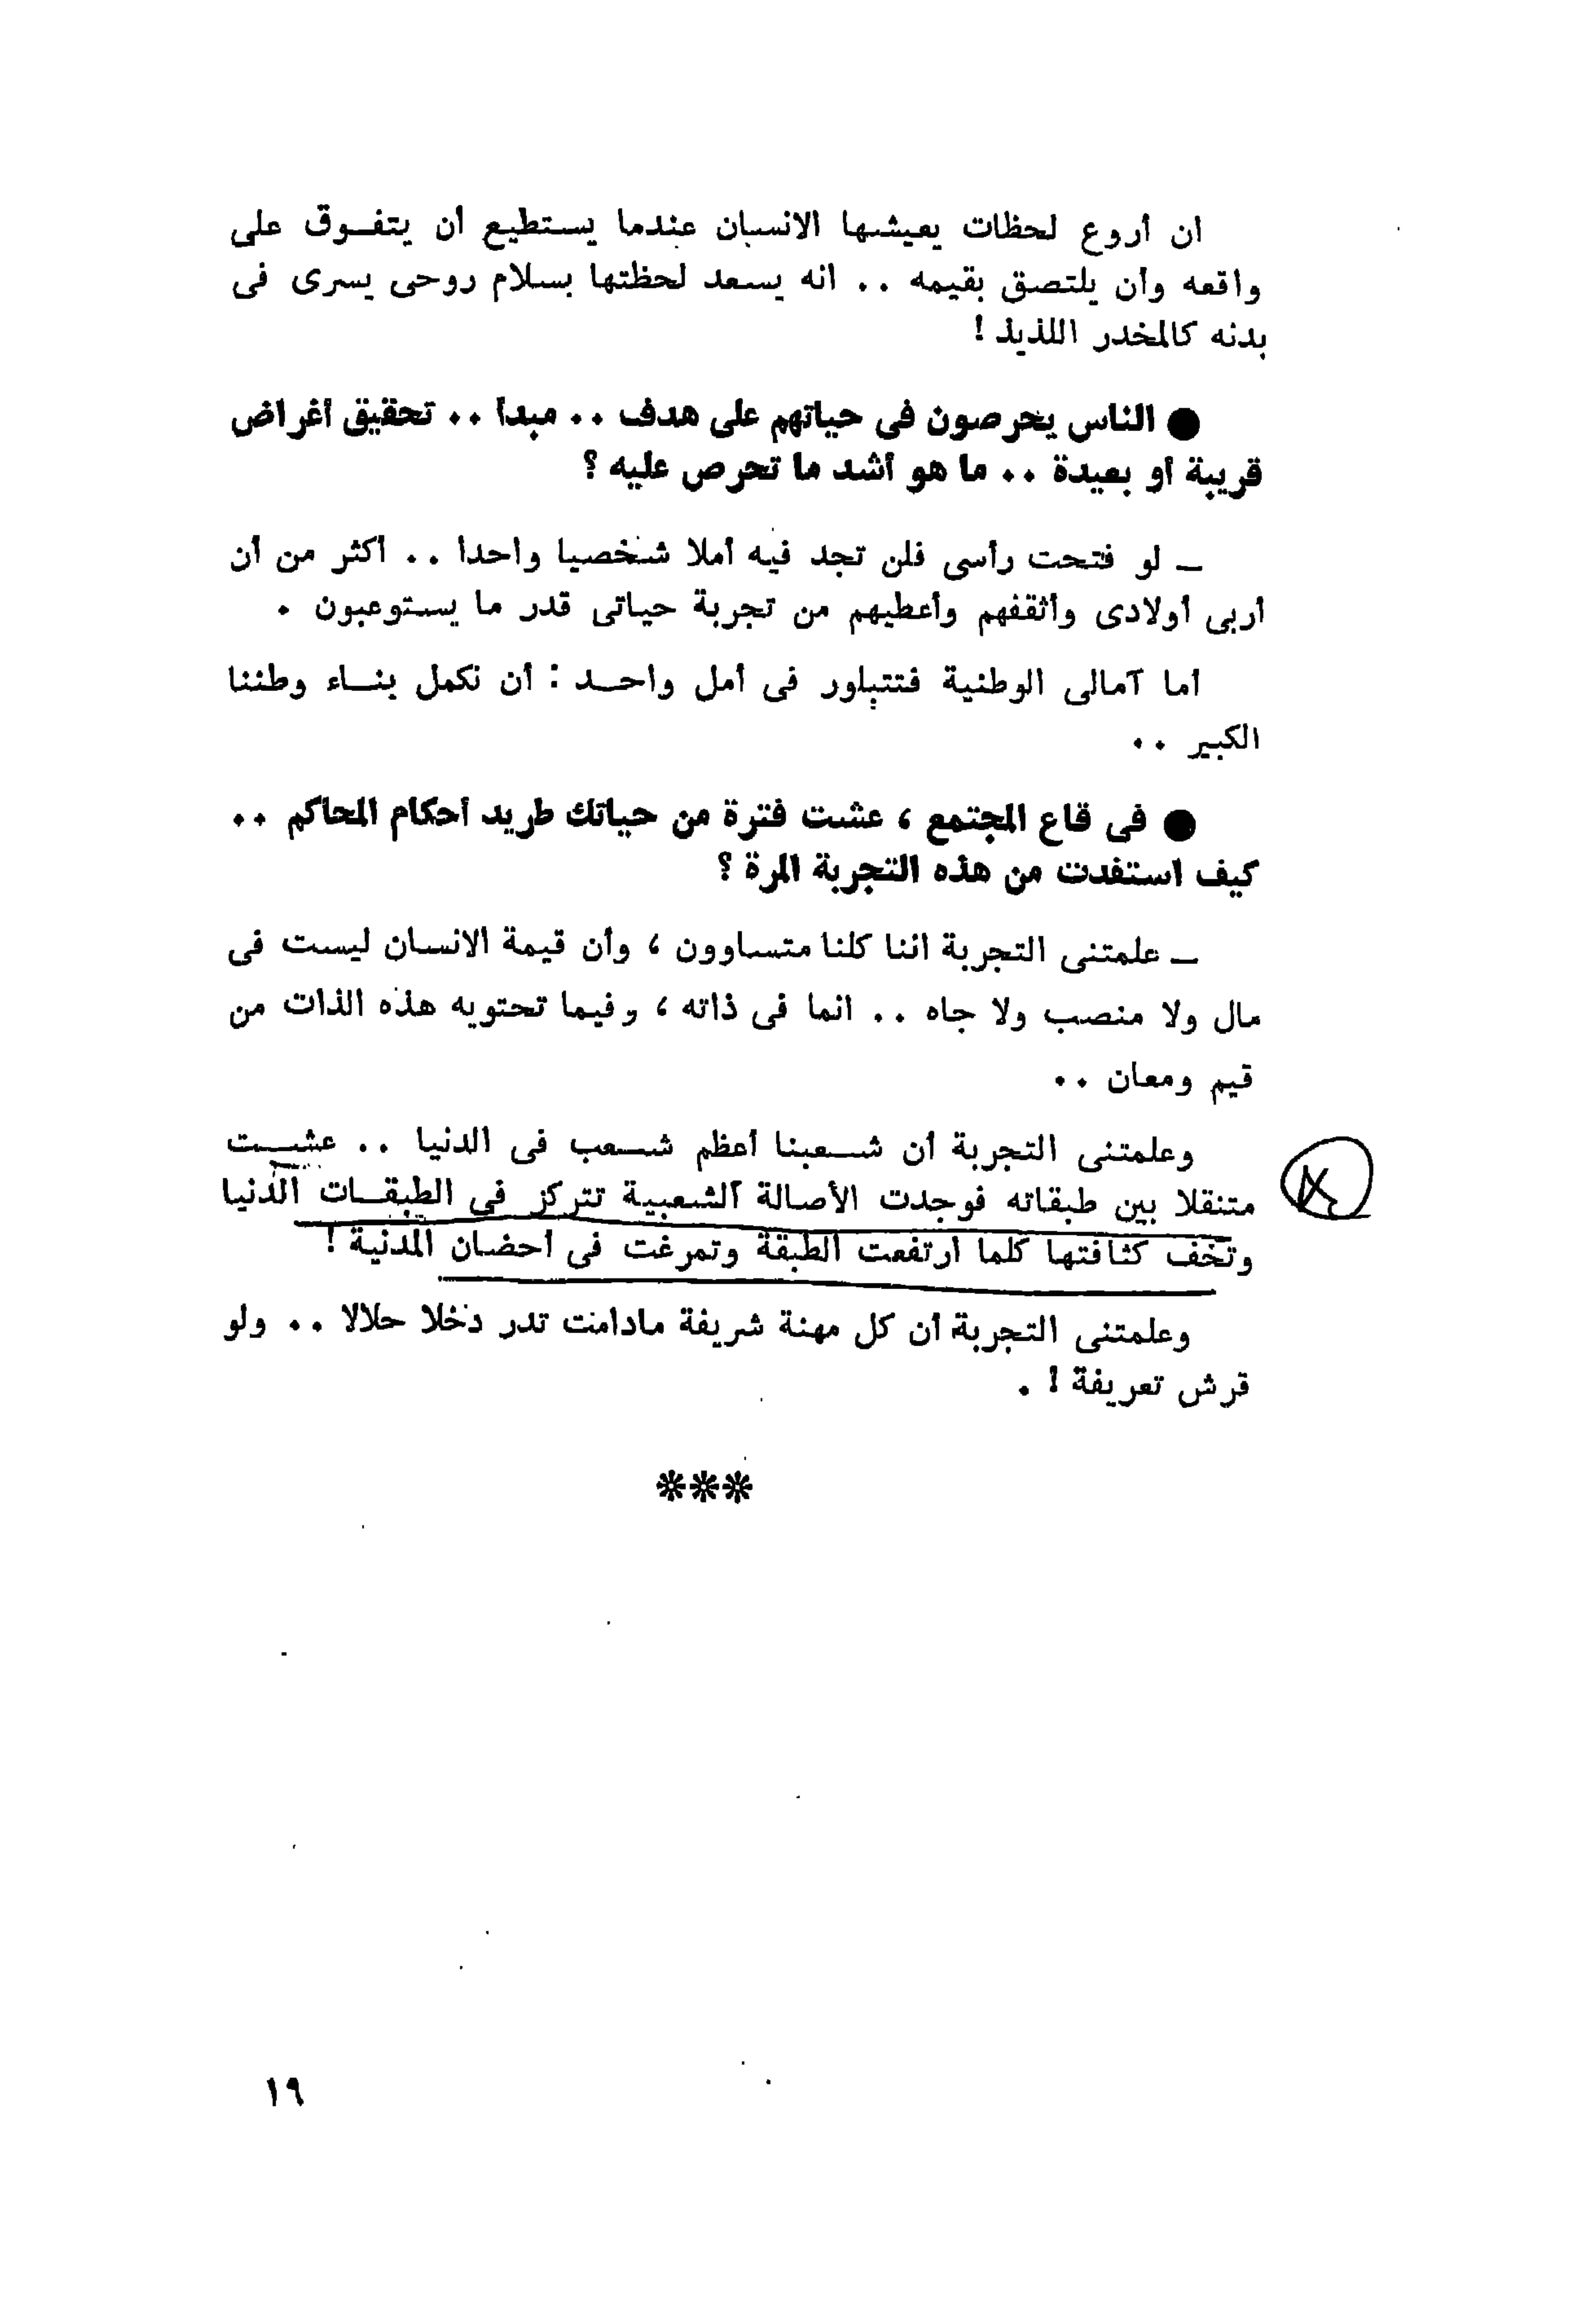 ان أروع لحظات يعيشها الانسان عندما يستطيع أن يتفوق على
واقعه وأن يلتصق بقيمه .. انه يسعد لحظتها بسلام روحى يسرى فى
بدنه كالمخدر اللذيذ !
● الناس يحرصون فى حياتهم على هدف .. مبدأ .. تحقيق أغراض
قريبة أو بعيدة .. ما هو أشد ما تحرص عليه ؟
ــ لو فتحت رأسى فلن تجد فيه أملا شخصيا واحدا .. أكثر من أن
أربى أولادى وأثقفهم وأعطيهم من تجربة حياتى قدر ما يستوعبون .
أما آمالى الوطنية فتتبلور فى أمل واحد : أن نكمل بناء وطننا
الكبير ..
● فى قاع المجتمع ، عشت فترة من حياتك طريد أحكام المحاكم ..
كيف استفدت من هذه التجربة المرة ؟
ــ علمتنى التجربة اننا كلنا متساوون ، وأن قيمة الانسان ليست فى
مال ولا منصب ولا جاه .. انما فى ذاته ، وفيما تحتويه هذه الذات من
قيم ومعان ..
وعلمتنى التجربة أن شعبنا أعظم شعب فى الدنيا .. عشت
متنقلا بين طبقاته فوجدت الأصالة الشعبية تتركز فى الطبقات الدنيا
وتخف كثافتها كلما ارتفعت الطبقة وتمرغت فى أحضان المدنية !
وعلمتنى التجربة أن كل مهنة شريفة مادامت تدر دخلا حلالا .. ولو
قرش تعريفة ! .
***
١٩